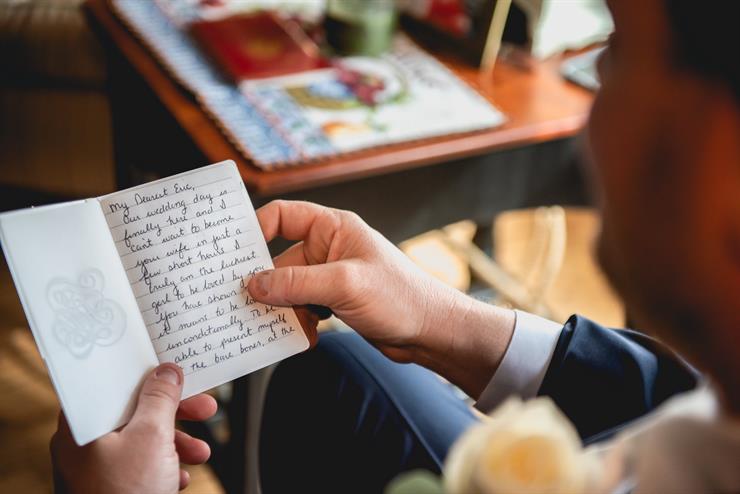 My Dearest Eric,
Our wedding day is
finally here and I
can't wait to become
your wife in just a
few short hours. I
truly am the luckiest
girl to be loved by you
You have shown
it means to be lo
unconditionally. To be
able to present myself
the bare bones, at the